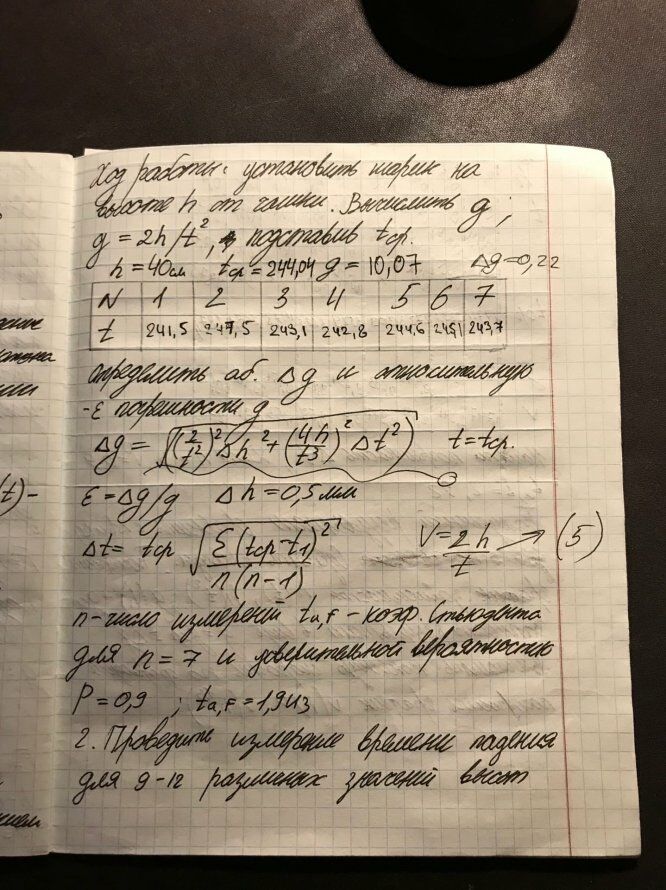 Ход работы: установить шарик на
высоте h от чашки. Вычислить g;
g = 2h/t², подставив tср.
h = 40см tср = 244,04 g = 10,07 Δg=0,22
N 1 2 3 4 5 6 7
t 241,5 247,5 243,1 242,8 244,6 245,1 243,7
определить аб. Δg и относительную
-ε погрешности g
Δg = √((2/t²)² Δh² + (4h/t³)² Δt²) t = tср.
ε = Δg/g Δh = 0,5мм
Δt = tср √(Σ(tср-t1)²/n(n-1)) V = 2h/t → (5)
n-число измерений ta,f - коэф. Стьюдента
для n = 7 и доверительной вероятностью
P = 0,9 ; ta,f = 1,943
2. Проведите измерение времени падения
для 9-12 разлиных значений высот
(t)-